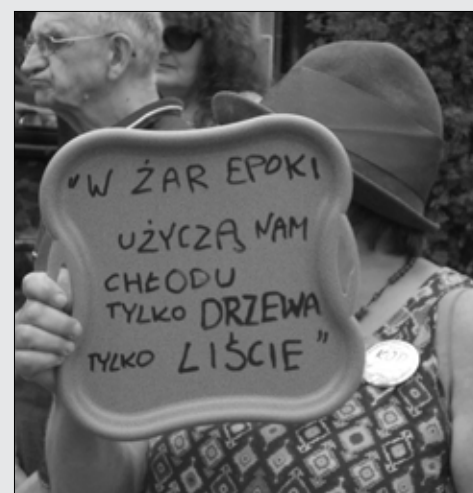 "W ŻAR EPOKI
UŻYCZĄ NAM
CHŁODU
TYLKO DRZEWA
TYLKO LIŚCIE"
KOD